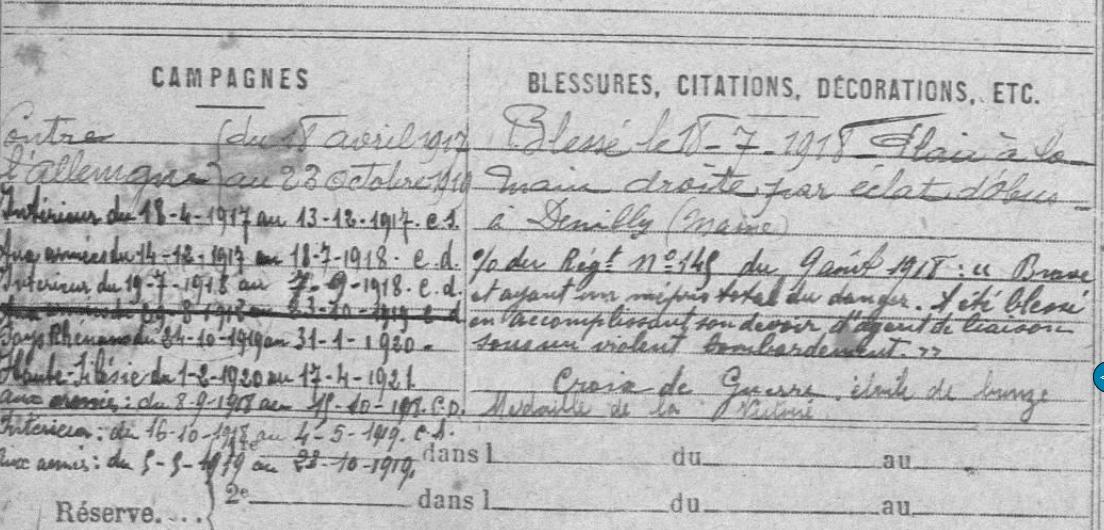 CAMPAGNES
Contre (du 18 avril 1917
l'allemagne) au 23 octobre 1919
Intérieur du 18-4-1917 au 13-12-1917. c.s.
Aux armées du 14-12-1917 au 18-7-1918. c.d.
Intérieur du 19-7-1918 au 7-9-1918. c.d.
au 23-10-1919 c.d.
Pays Rhénans du 24-10-1919 au 31-1-1920.
Haute-Silésie du 1-2-1920 au 17-4-1921.
aux armées: du 8-9-1918 au 15-10-1918. C.D.
Intérieur: du 16-10-1918 au 4-5-1919. c.s.
aux armées: du 5-5-1919 au 23-10-1919.
BLESSURES, CITATIONS, DÉCORATIONS, ETC.
Blessé le 18-7-1918 Plaie à la
main droite par éclat d'obus
à (Marne)
du Régt. No 149 du 9 août 1918: " Brave
et ayant un mépris total du danger. A été blessé
en accomplissant son devoir d'agent de liaison
sous un violent bombardement. "
Croix de Guerre étoile de bronze
Médaille de la Victoire
dans l du au
Réserve....
2e dans l du au